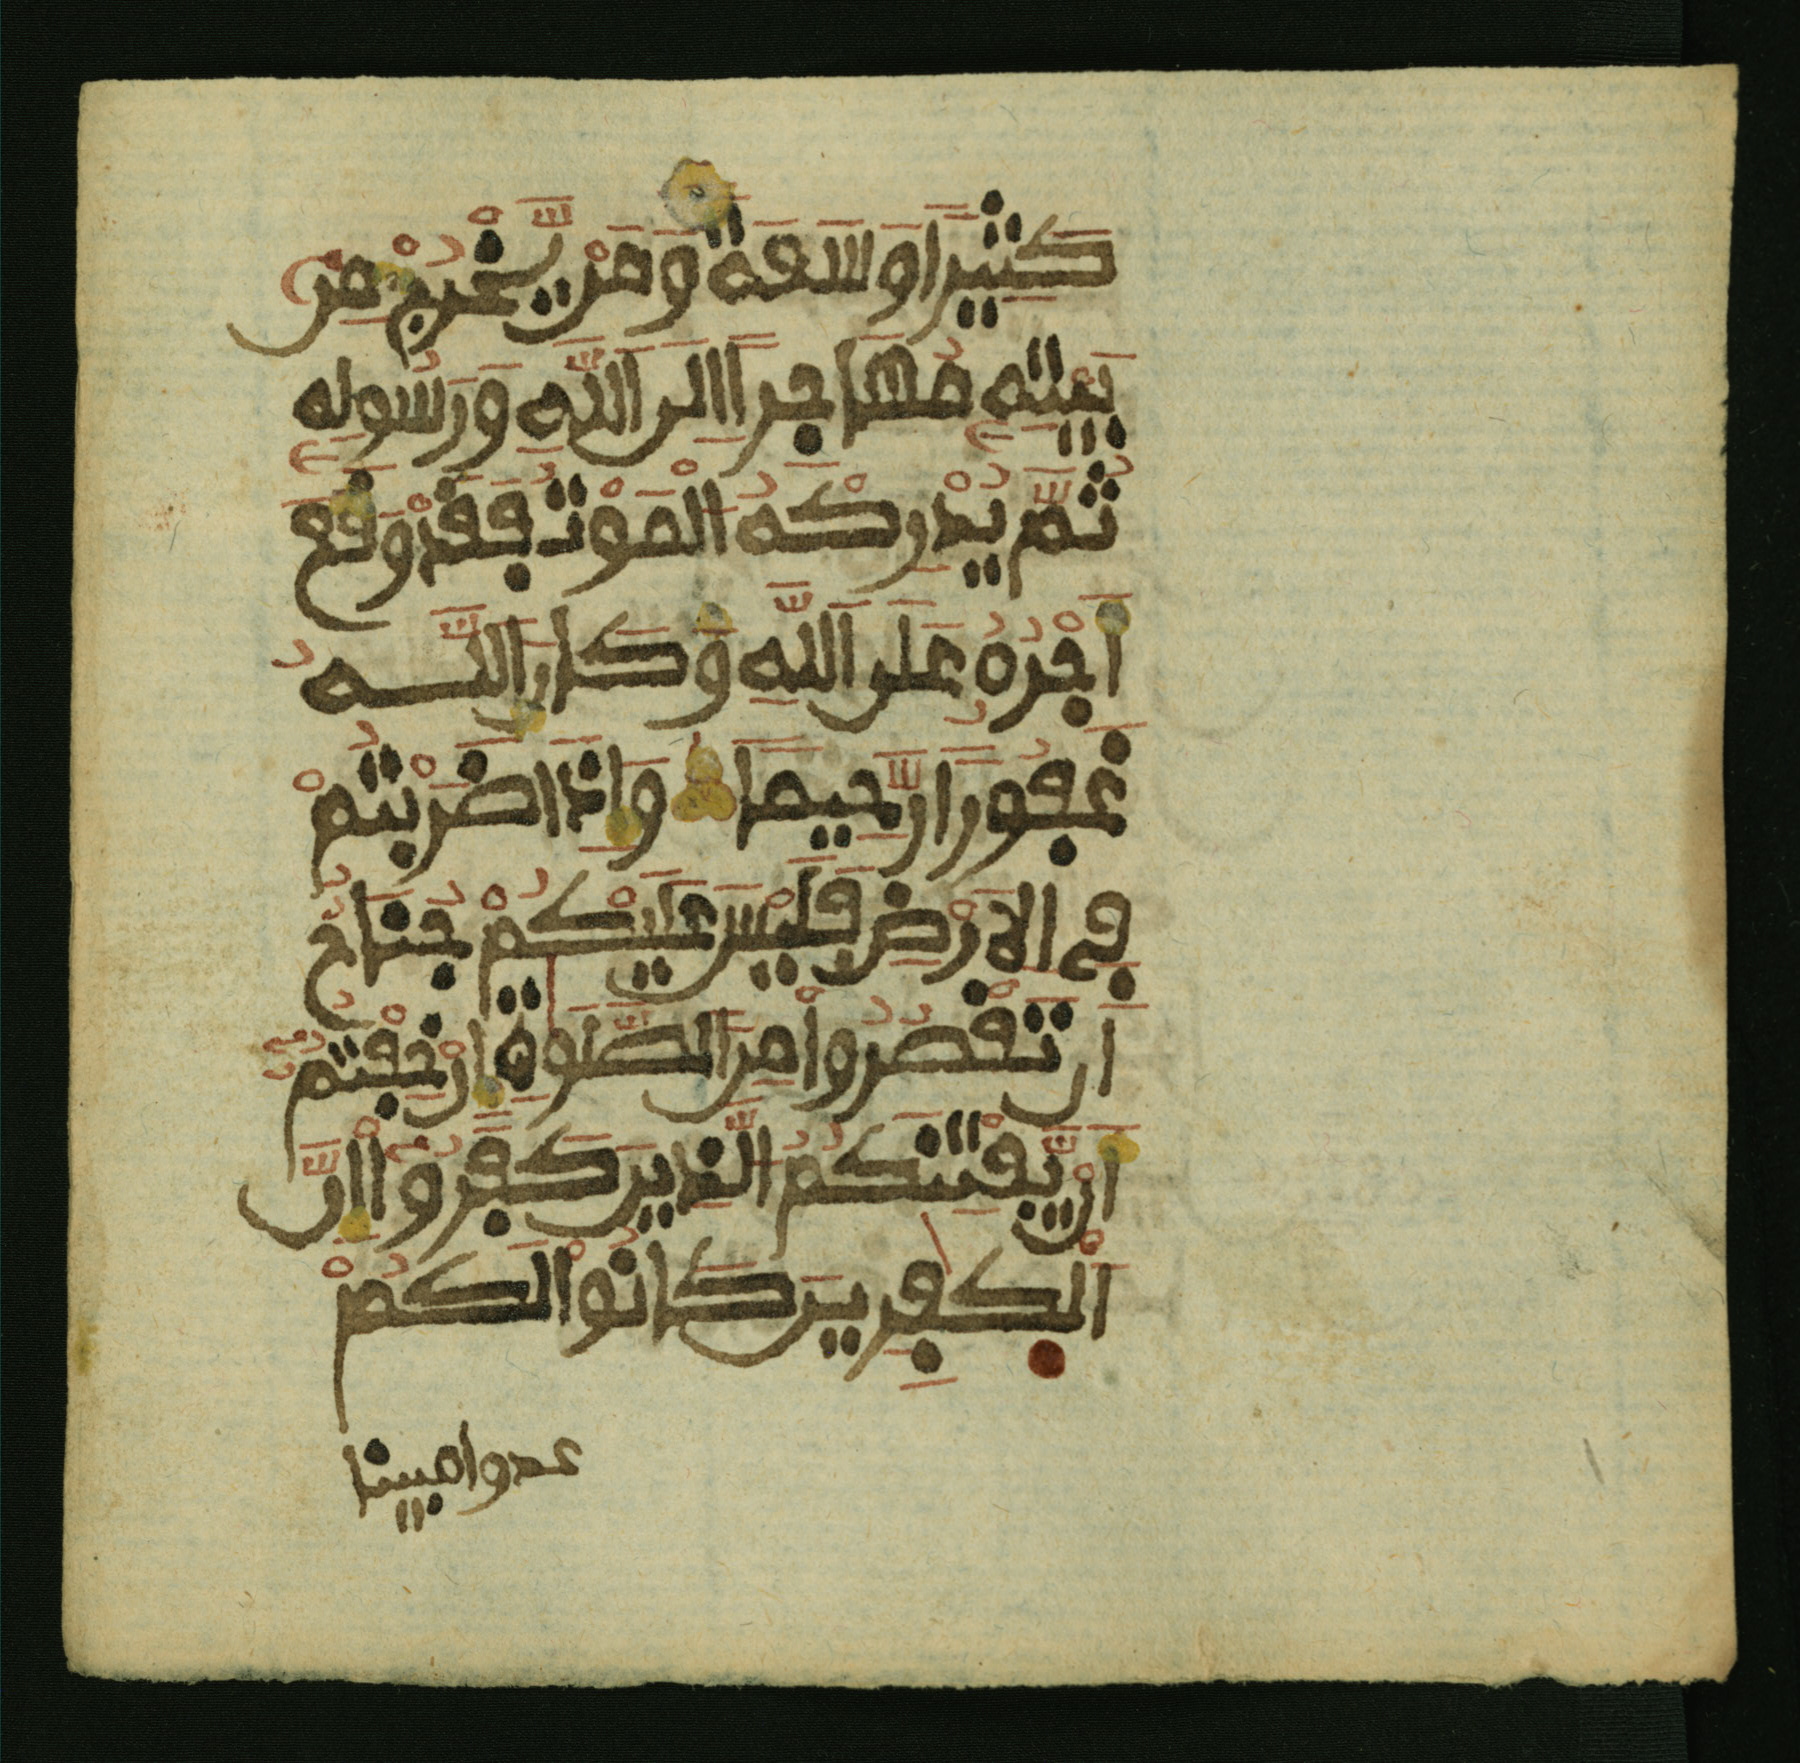 كَثِيرًا وَسَعَةً وَمَنْ يَّخْرُجْ مِنۢ
بَيْتِهِۦ مُهَاجِرًا اِلَى اللَّهِ وَرَسُولِهِۦ
ثُمَّ يُدْرِكْهُ الْمَوْتُ فَقَدْ وَقَعَ
أَجْرُهُۥ عَلَى اللَّهِ وَكَانَ اللَّهُ
غَفُورًا رَّحِيمًا وَإِذَا ضَرَبْتُمْ
فِي الَارْضِ فَلَيْسَ عَلَيْكُمْ جُنَاحٌ
اَن تَقْصُرُواْ مِنَ الصَّلَوٰةِ إِنْ خِفْتُمُۥ
أَنْ يَّفْتِنَكُمُ الَّذِينَ كَفَرُوٓاْ إِنَّ
اَلْكَٰفِرِينَ كَانُواْ لَكُمْ
عدوا مبينا